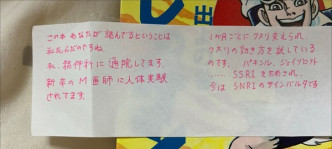 この本あなたが読んでるということは
私死んだのですね
私、精神科に通院してます。
新卒のM医師に人体実験
されてます。
1ヶ月ごとにクスリ変えられ、
クスリの効き方を試している
のです。パキシル、ジェイゾロフト
……SSRIをためされ、
今はSNRIのサインバルタである